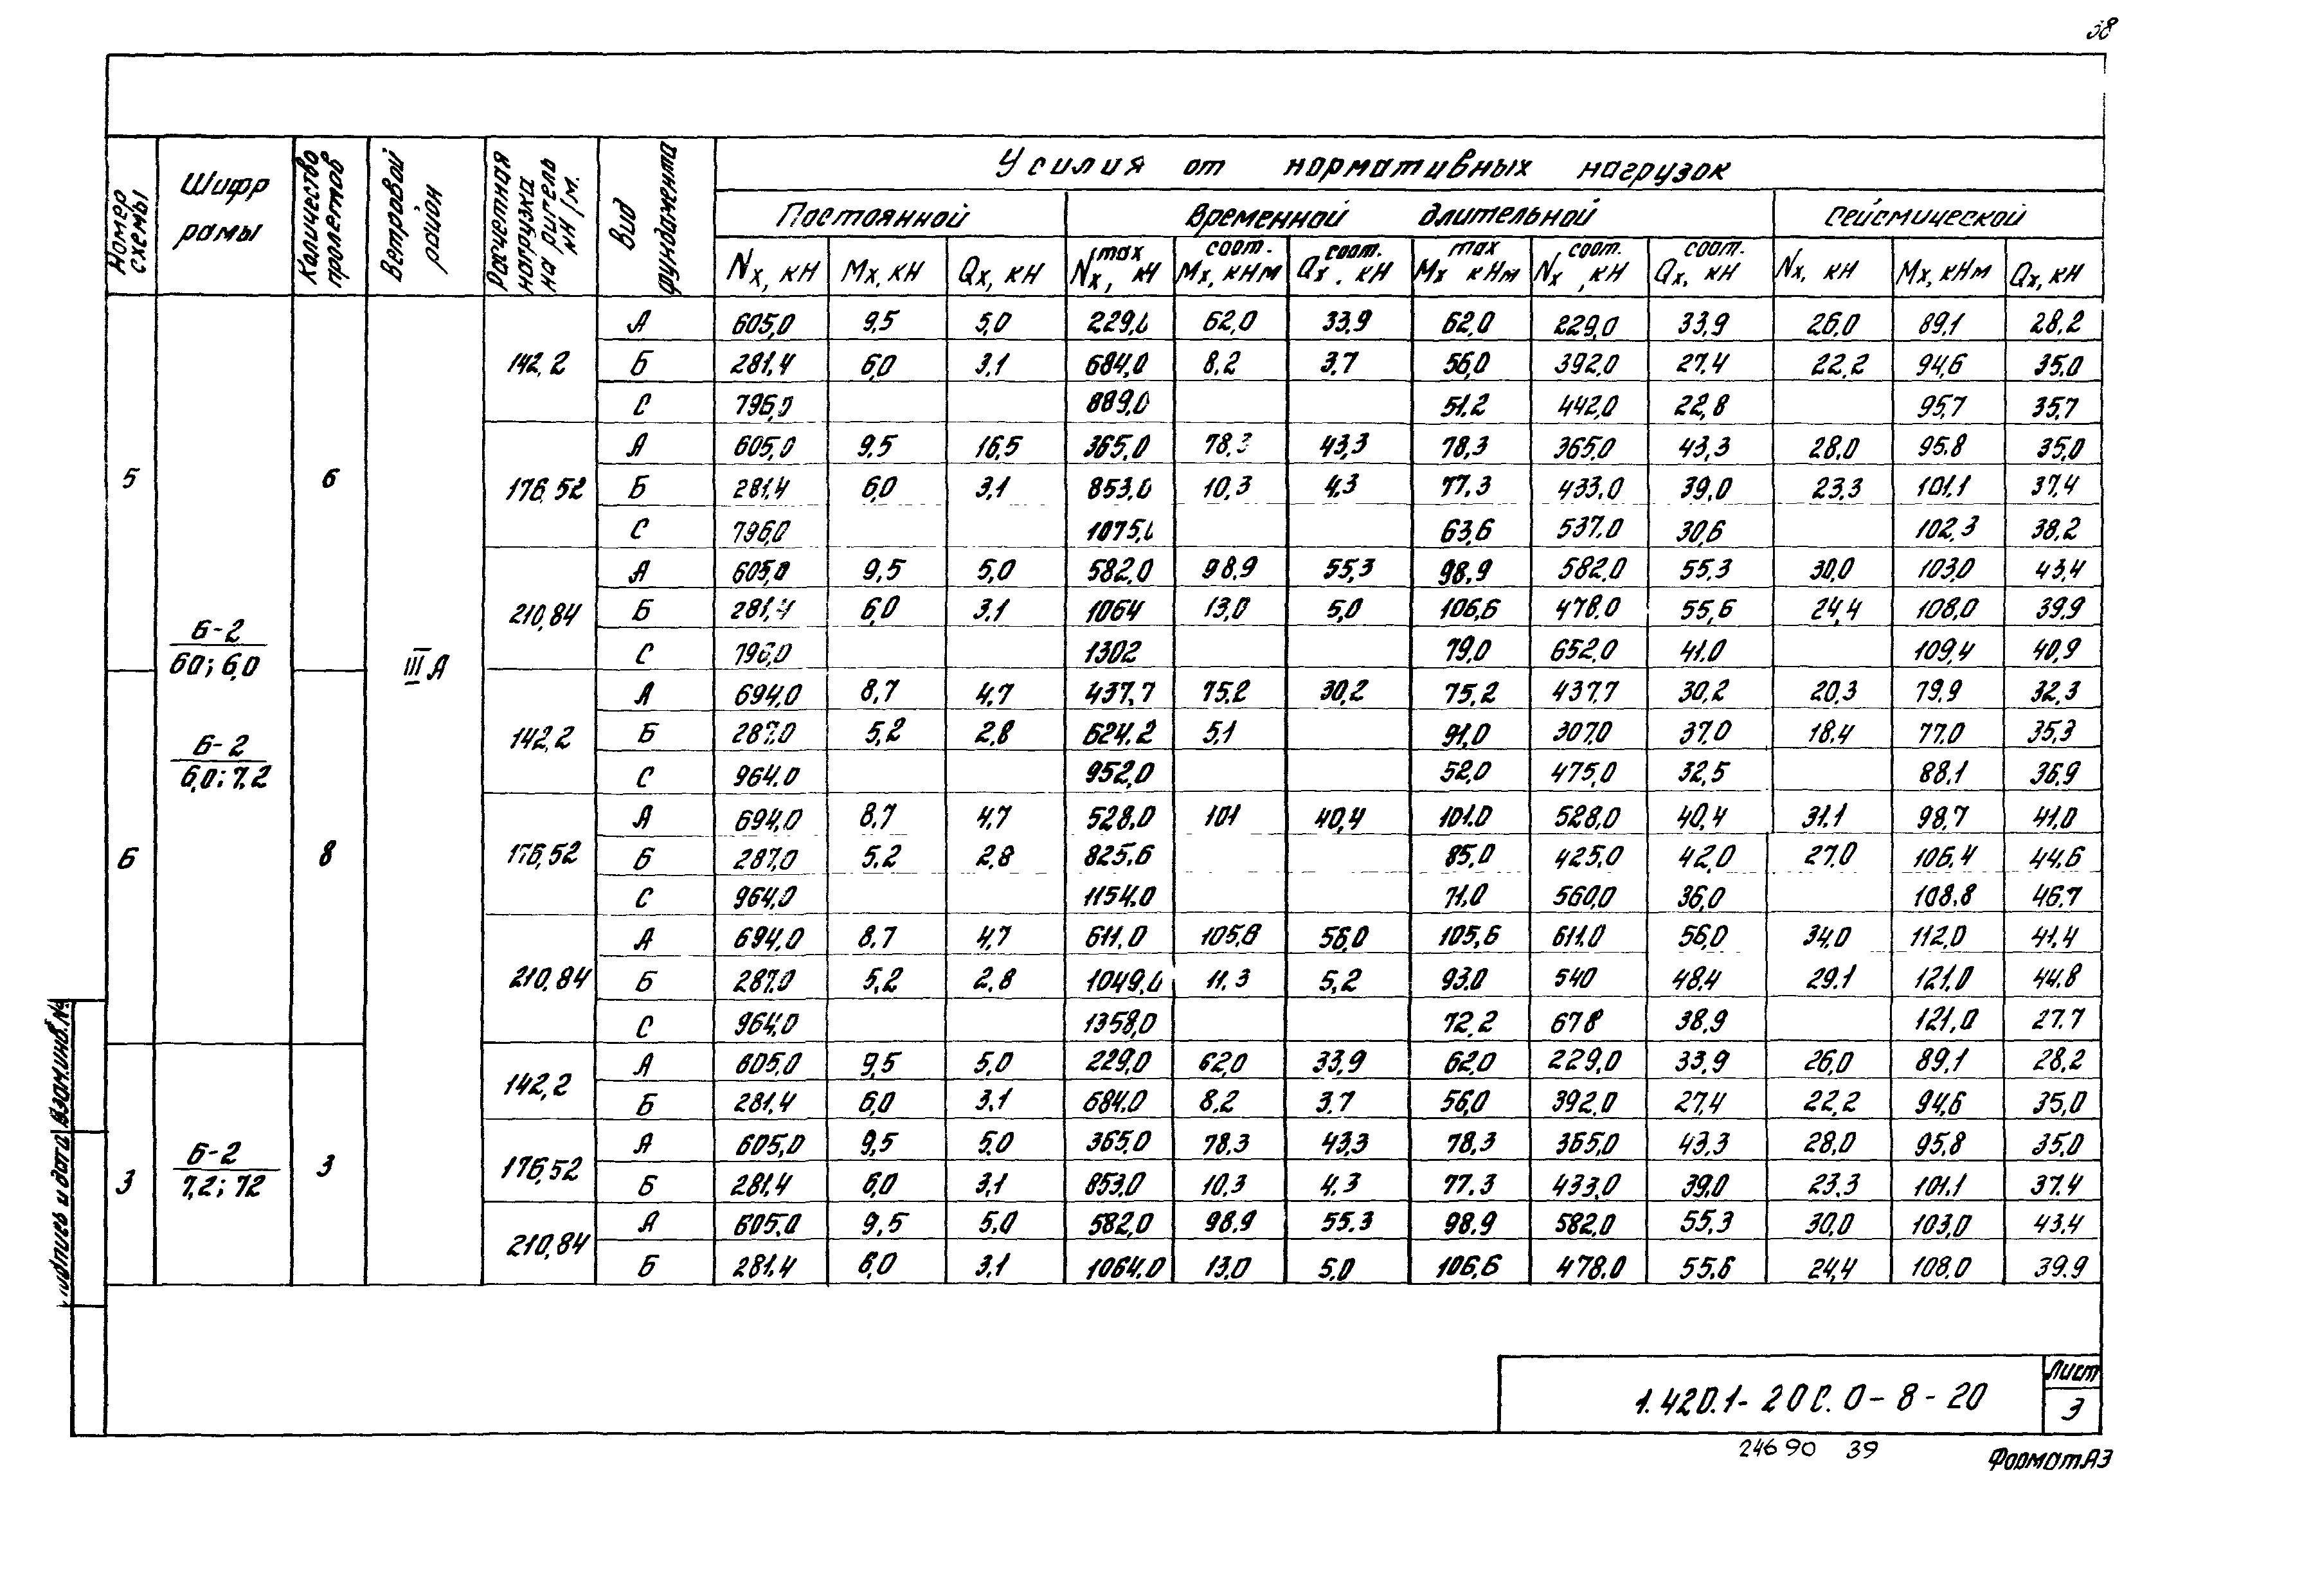 38
Номер схемы
Шифр рамы
Количество пролетов
Ветровой район
Расчетная нагрузка на ригель кН/м.
Вид фундамента
Усилия от нормативных нагрузок
Постоянной Временной длительной сейсмической
Nx, кН Mx, кН Qx, кН Nx max, кН Mx соот., кНм Qx соот., кН Mx max кНм Nx соот., кН Qx соот., кН Nx, кН Mx, кНм Qx, кН
5 6 III А
Б-2
6,0; 6,0
Б-2
6,0; 7,2
142,2
А 605,0 9,5 5,0 229,0 62,0 33,9 62,0 229,0 33,9 26,0 89,1 28,2
Б 281,4 6,0 3,1 684,0 8,2 3,7 56,0 392,0 27,4 22,2 94,6 35,0
С 796,0 889,0 51,2 442,0 22,8 95,7 35,7
176,52
А 605,0 9,5 16,5 365,0 78,3 43,3 78,3 365,0 43,3 28,0 95,8 35,0
Б 281,4 6,0 3,1 853,0 10,3 4,3 77,3 433,0 39,0 23,3 101,1 37,4
С 796,0 1075,0 63,6 537,0 30,6 102,3 38,2
210,84
А 605,0 9,5 5,0 582,0 98,9 55,3 98,9 582,0 55,3 30,0 103,0 43,4
Б 281,4 6,0 3,1 1064 13,0 5,0 106,6 478,0 55,6 24,4 108,0 39,9
С 796,0 1302 79,0 652,0 41,0 109,4 40,9
6 8
142,2
А 694,0 8,7 4,7 437,7 75,2 30,2 75,2 437,7 30,2 20,3 79,9 32,3
Б 287,0 5,2 2,8 624,2 5,1 91,0 307,0 37,0 18,4 77,0 35,3
С 964,0 952,0 52,0 475,0 32,5 88,1 36,9
176,52
А 694,0 8,7 4,7 528,0 101 40,4 101,0 528,0 40,4 31,1 98,7 41,0
Б 287,0 5,2 2,8 825,6 85,0 425,0 42,0 27,0 106,4 44,6
С 964,0 1154,0 71,0 560,0 36,0 108,8 46,7
210,84
А 694,0 8,7 4,7 611,0 105,6 56,0 105,6 611,0 56,0 34,0 112,0 41,4
Б 287,0 5,2 2,8 1049,0 11,3 5,2 93,0 540 48,4 29,1 121,0 44,8
С 964,0 1358,0 72,2 678 38,9 121,0 27,7
3 Б-2
7,2; 72
3
142,2
А 605,0 9,5 5,0 229,0 62,0 33,9 62,0 229,0 33,9 26,0 89,1 28,2
Б 281,4 6,0 3,1 684,0 8,2 3,7 56,0 392,0 27,4 22,2 94,6 35,0
176,52
А 605,0 9,5 5,0 365,0 78,3 43,3 78,3 365,0 43,3 28,0 95,8 35,0
Б 281,4 6,0 3,1 853,0 10,3 4,3 77,3 433,0 39,0 23,3 101,1 37,4
210,84
А 605,0 9,5 5,0 582,0 98,9 55,3 98,9 582,0 55,3 30,0 103,0 43,4
Б 281,4 6,0 3,1 1064,0 13,0 5,0 106,6 478,0 55,6 24,4 108,0 39,9
Взам.инв.№
Подпись и дата
1.420.1-20С.0-8-20
Лист
3
24690 39
Формат А3